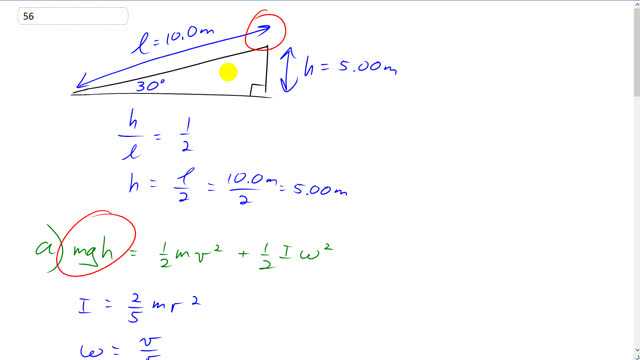 56
l = 10.0m
h = 5.00m
30°
h/l = 1/2
h = l/2 = 10.0m/2 = 5.00m
a) mgh = 1/2 m v² + 1/2 I ω²
I = 2/5 m r²
ω = v/r